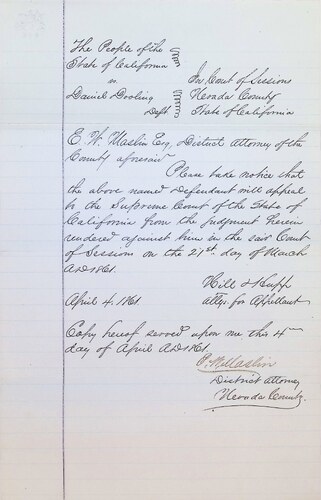 The People of the
State of California
vs
Daniel Dooling
Deft
In Court of Sessions
Nevada County
State of California
E. W. Maslin Esq, District Attorney of the
County aforesaid
Please take notice that
the above named Defendant will appeal
to the Supreme Court of the State of
California from the judgment herein
rendered against him in the said Court
of Session on the 21st day of March
AD 1861.
Hill & Hupp
April 4, 1861 attys. for Appellant
Copy hereof served upon me this 4th
day of April AD 1861.
Maslin
District Attorney
Nevada County.